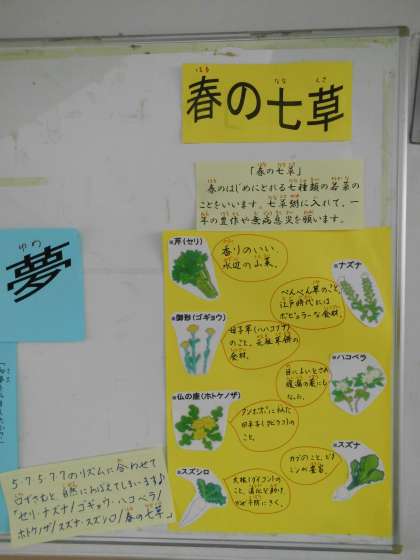 春の七草
「春の七草」
春のはじめにとれる七種類の若菜の
ことをいいます。七草粥に入れて、一
年の豊作や無病息災を願います。
※芹(セリ)
香りのいい
水辺の山菜。
※ナズナ
ぺんぺん草のこと。
江戸時代には
ポピュラーな食材。
※御形(ゴギョウ)
母子草(ハハコグサ)
のこと。元祖草餅の
食材。
※ハコベラ
目によいとされ
腹痛の薬にも
なった。
※仏の座(ホトケノザ)
タンポポに似た
のこと。
※スズナ
カブのこと。ビタ
ミンが豊富
※スズシロ
大根(ダイコン)の
こと。消化を助け
かぜ予防にきく。
ゆめ
夢
5・7・5・7・7のリズムに合わせて
口ずさむと、自然におぼえてしまいます♪
「セリ・ナズナ/ゴギョウ・ハコベラ/
ホトケノザ/スズナ・スズシロ/春の七草」